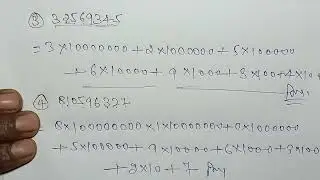 ③ 32569345
= 3×10000000+2×1000000+5×100000
+6×10000+9×1000+3×100+4×10+
Ans.
④ 810596327
= 8×100000000×1×10000000+0×1000000
+5×100000+9×10000+6×1000+3×100
+2×10+7 Ans